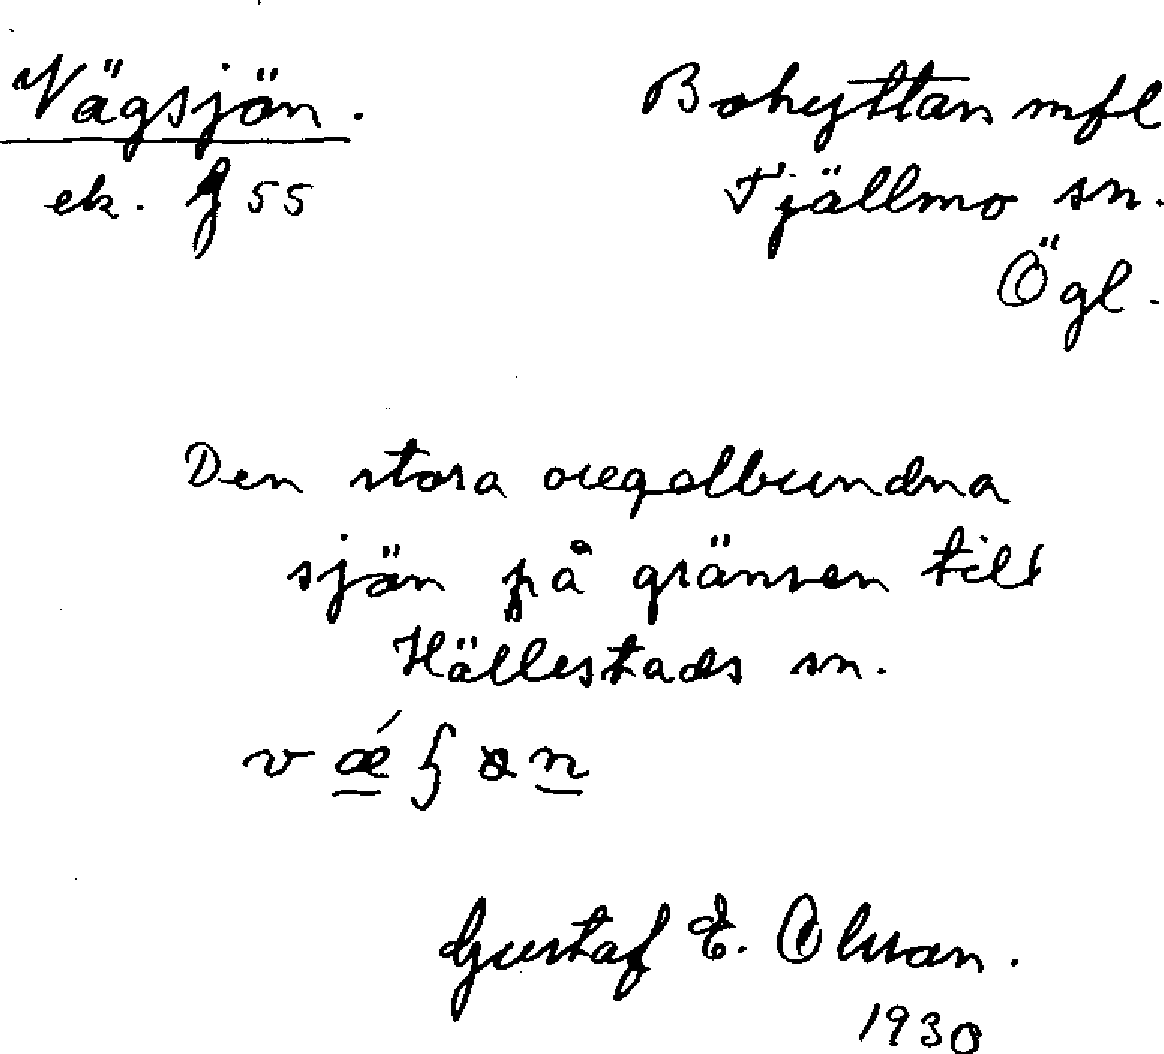 Vägsjön. Bohyttan mfl
ek. § 55 Tjällmo sn.
Ögl.
Den stora oregelbundna
sjön på gränsen till
Hällestads sn.
Gustaf E. Olsson.
1930